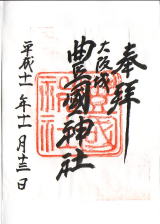 奉拝
大阪城
豊國神社
平成十一年十一月十三日